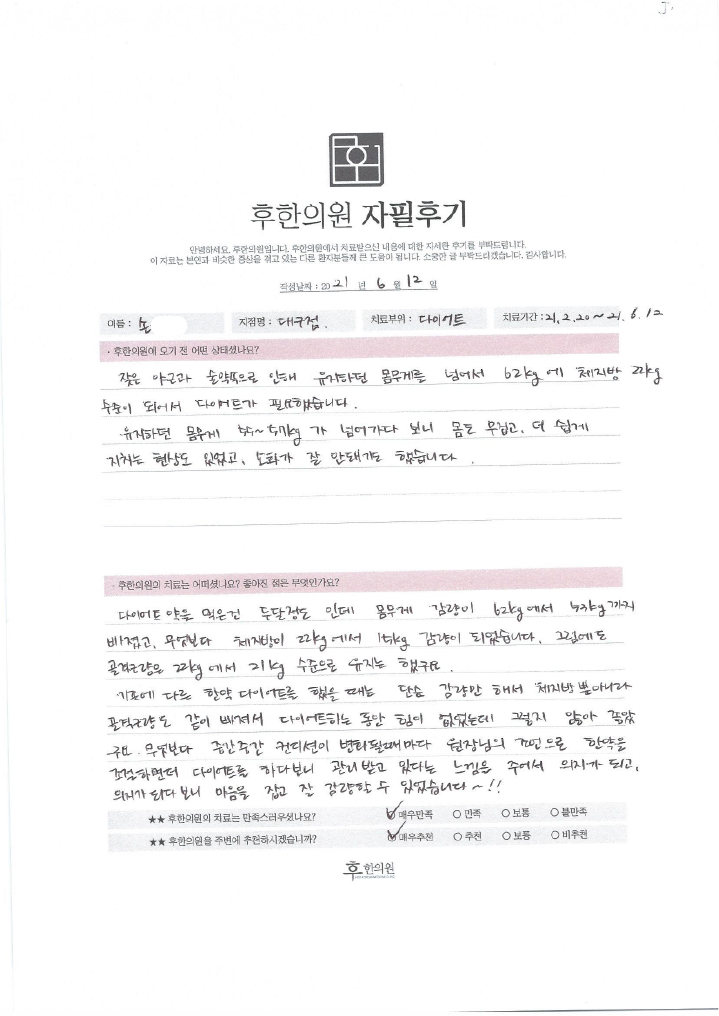 후한의원 자필후기
안녕하세요. 후한의원입니다. 후한의원에서 치료받으신 내용에 대한 자세한 후기를 부탁드립니다.
이 자료는 본인과 비슷한 증상을 겪고 있는 다른 환자분들께 큰 도움이 됩니다. 소중한 글 부탁드리겠습니다. 감사합니다.
작성날짜 : 2021 년 6 월 12 일
이름 : 손 지점명 : 대구점. 치료부위 : 다이어트 치료기간 : 21.2.20 ~ 21.6.12
· 후한의원에 오기 전 어떤 상태셨나요?
잦은 야근과 술약속으로 인해 유지하던 몸무게를 넘어서 62kg에 체지방 22kg
수준이 되어서 다이어트가 필요했습니다.
유지하던 몸무게 55~57kg가 넘어가다 보니 몸도 무겁고, 더 쉽게
지치는 현상도 있었고, 소화가 잘 안돼기도 했습니다.
· 후한의원의 치료는 어떠셨나요? 좋아진 점은 무엇인가요?
다이어트 약을 먹은건 두달정도 인데 몸무게 감량이 62kg에서 53kg까지
빠졌고, 무엇보다 체지방이 22kg에서 15kg 감량이 되었습니다. 그럼에도
골격근량은 22kg에서 21kg 수준으로 유지는 했구요.
기존에 다른 한약 다이어트를 했을 때는 단순 감량만 해서 체지방 뿐아니라
골격근량도 같이 빠져서 다이어트하는 동안 힘이 없었는데 그렇지 않아 좋았
구요. 무엇보다 중간중간 컨디션이 변화될때마다 원장님의 조언으로 한약을
조절하면서 다이어트를 하다보니 관리받고 있다는 느낌을 주어서 의지가 되고,
의지가 되다 보니 마음을 잡고 잘 감량할 수 있었습니다~!!
★★ 후한의원의 치료는 만족스러우셨나요? ✓매우만족 ○만족 ○보통 ○불만족
★★ 후한의원을 주변에 추천하시겠습니까? ✓매우추천 ○추천 ○보통 ○비추천
후한의원